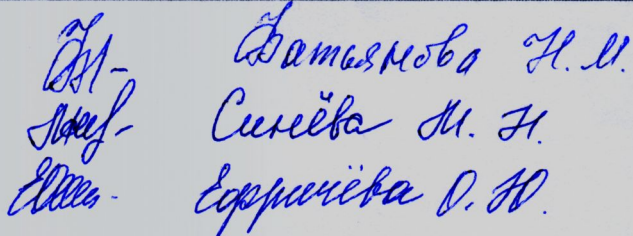 Батьянова Н. М.
Синёва М. Н.
Ефричёва О. Ю.